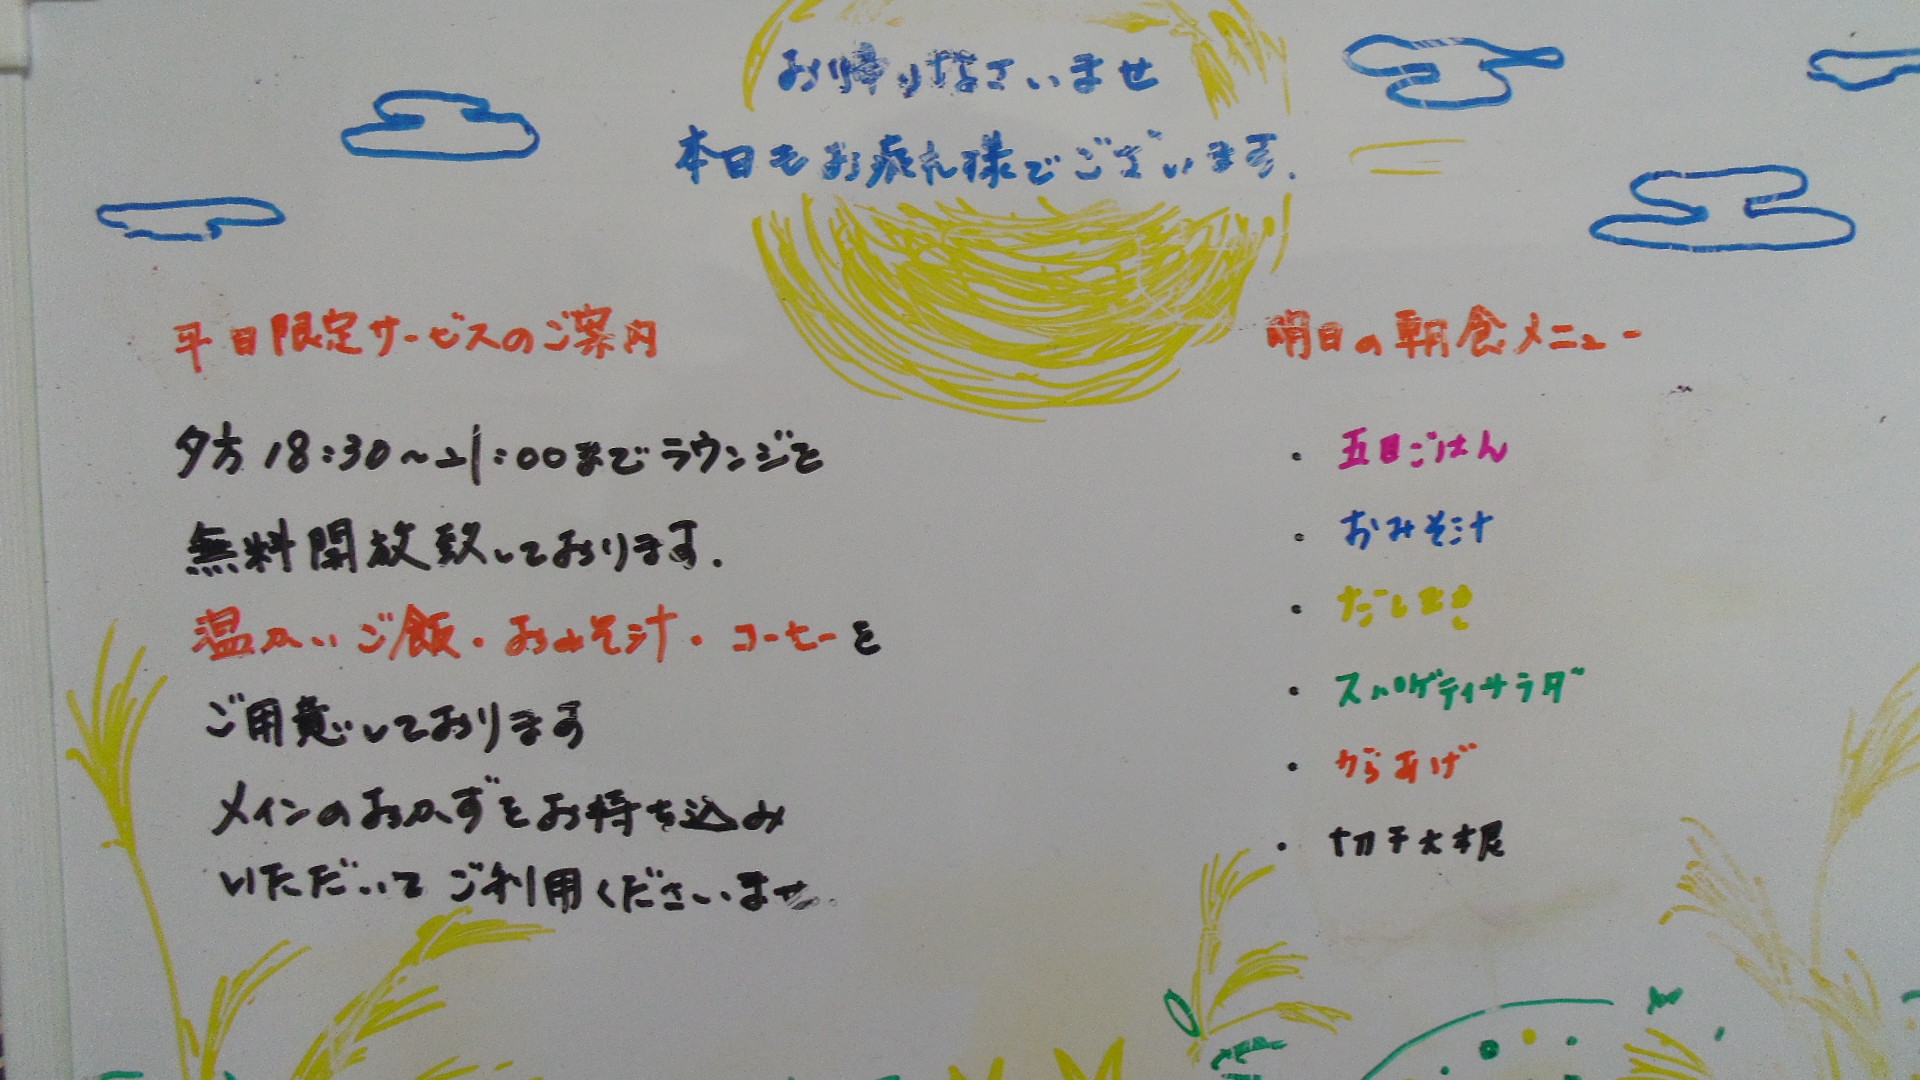 お帰りなさいませ
本日もお疲れ様でございます.
平日限定サービスのご案内
夕方 18:30～21:00までラウンジを
無料開放致しております.
温かいご飯・おみそ汁・コーヒーを
ご用意しております
メインのおかずをお持ち込み
いただいてご利用くださいませ.
明日の朝食メニュー
・五目ごはん
・おみそ汁
・だしまき
・スパゲティサラダ
・からあげ
・切干大根